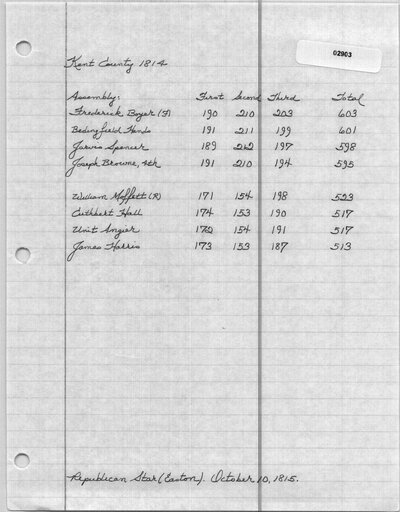 02903
Kent County 1814
Assembly: First Second Third Total
Frederick Boyer (F) 190 210 203 603
Bedingfield Hands 191 211 199 601
Jarvis Spencer 189 212 197 598
Joseph Browne, 4th 191 210 194 595
William Moffett (R) 171 154 198 523
Cuthbert Hall 174 153 190 517
Unit Angier 172 154 191 517
James Harris 173 153 187 513
Republican Star (Easton). October 10, 1815.